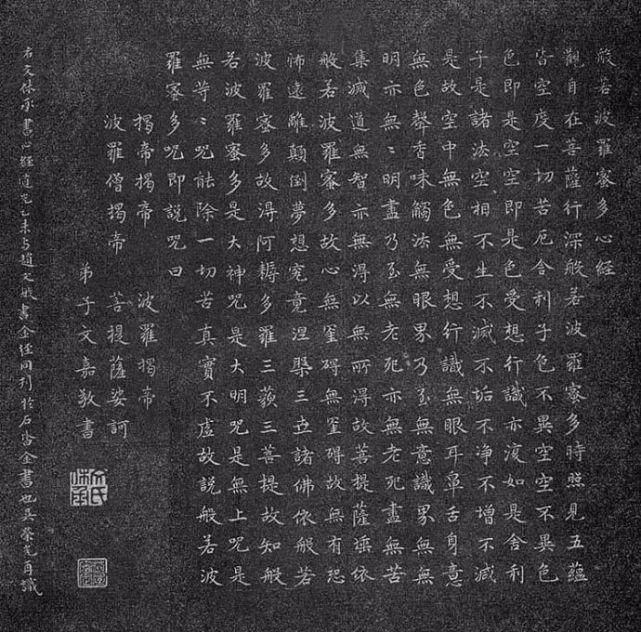 般若波羅蜜多心經
觀自在菩薩行深般若波羅蜜多時照見五蘊
皆空度一切苦厄舍利子色不異空空不異色
色即是空空即是色受想行識亦復如是舍利
子是諸法空相不生不滅不垢不淨不增不減
是故空中無色無受想行識無眼耳鼻舌身意
無色聲香味觸法無眼界乃至無意識界無無
明亦無〻明盡乃至無老死亦無老死盡無苦
集滅道無智亦無得以無所得故菩提薩埵依
般若波羅蜜多故心無罣礙無罣礙故無有恐
怖遠離顛倒夢想究竟涅槃三世諸佛依般若
波羅蜜多故得阿耨多羅三藐三菩提故知般
若波羅蜜多是大神咒是大明咒是無上咒是
無等〻咒能除一切苦真實不虛故說般若波
羅蜜多咒即說咒曰
揭帝揭帝 波羅揭帝
波羅僧揭帝 菩提薩婆訶
弟子文嘉敬書
右文休承書心經道光乙未与趙文敏書金經同刊於石皆金書也吳榮光再識